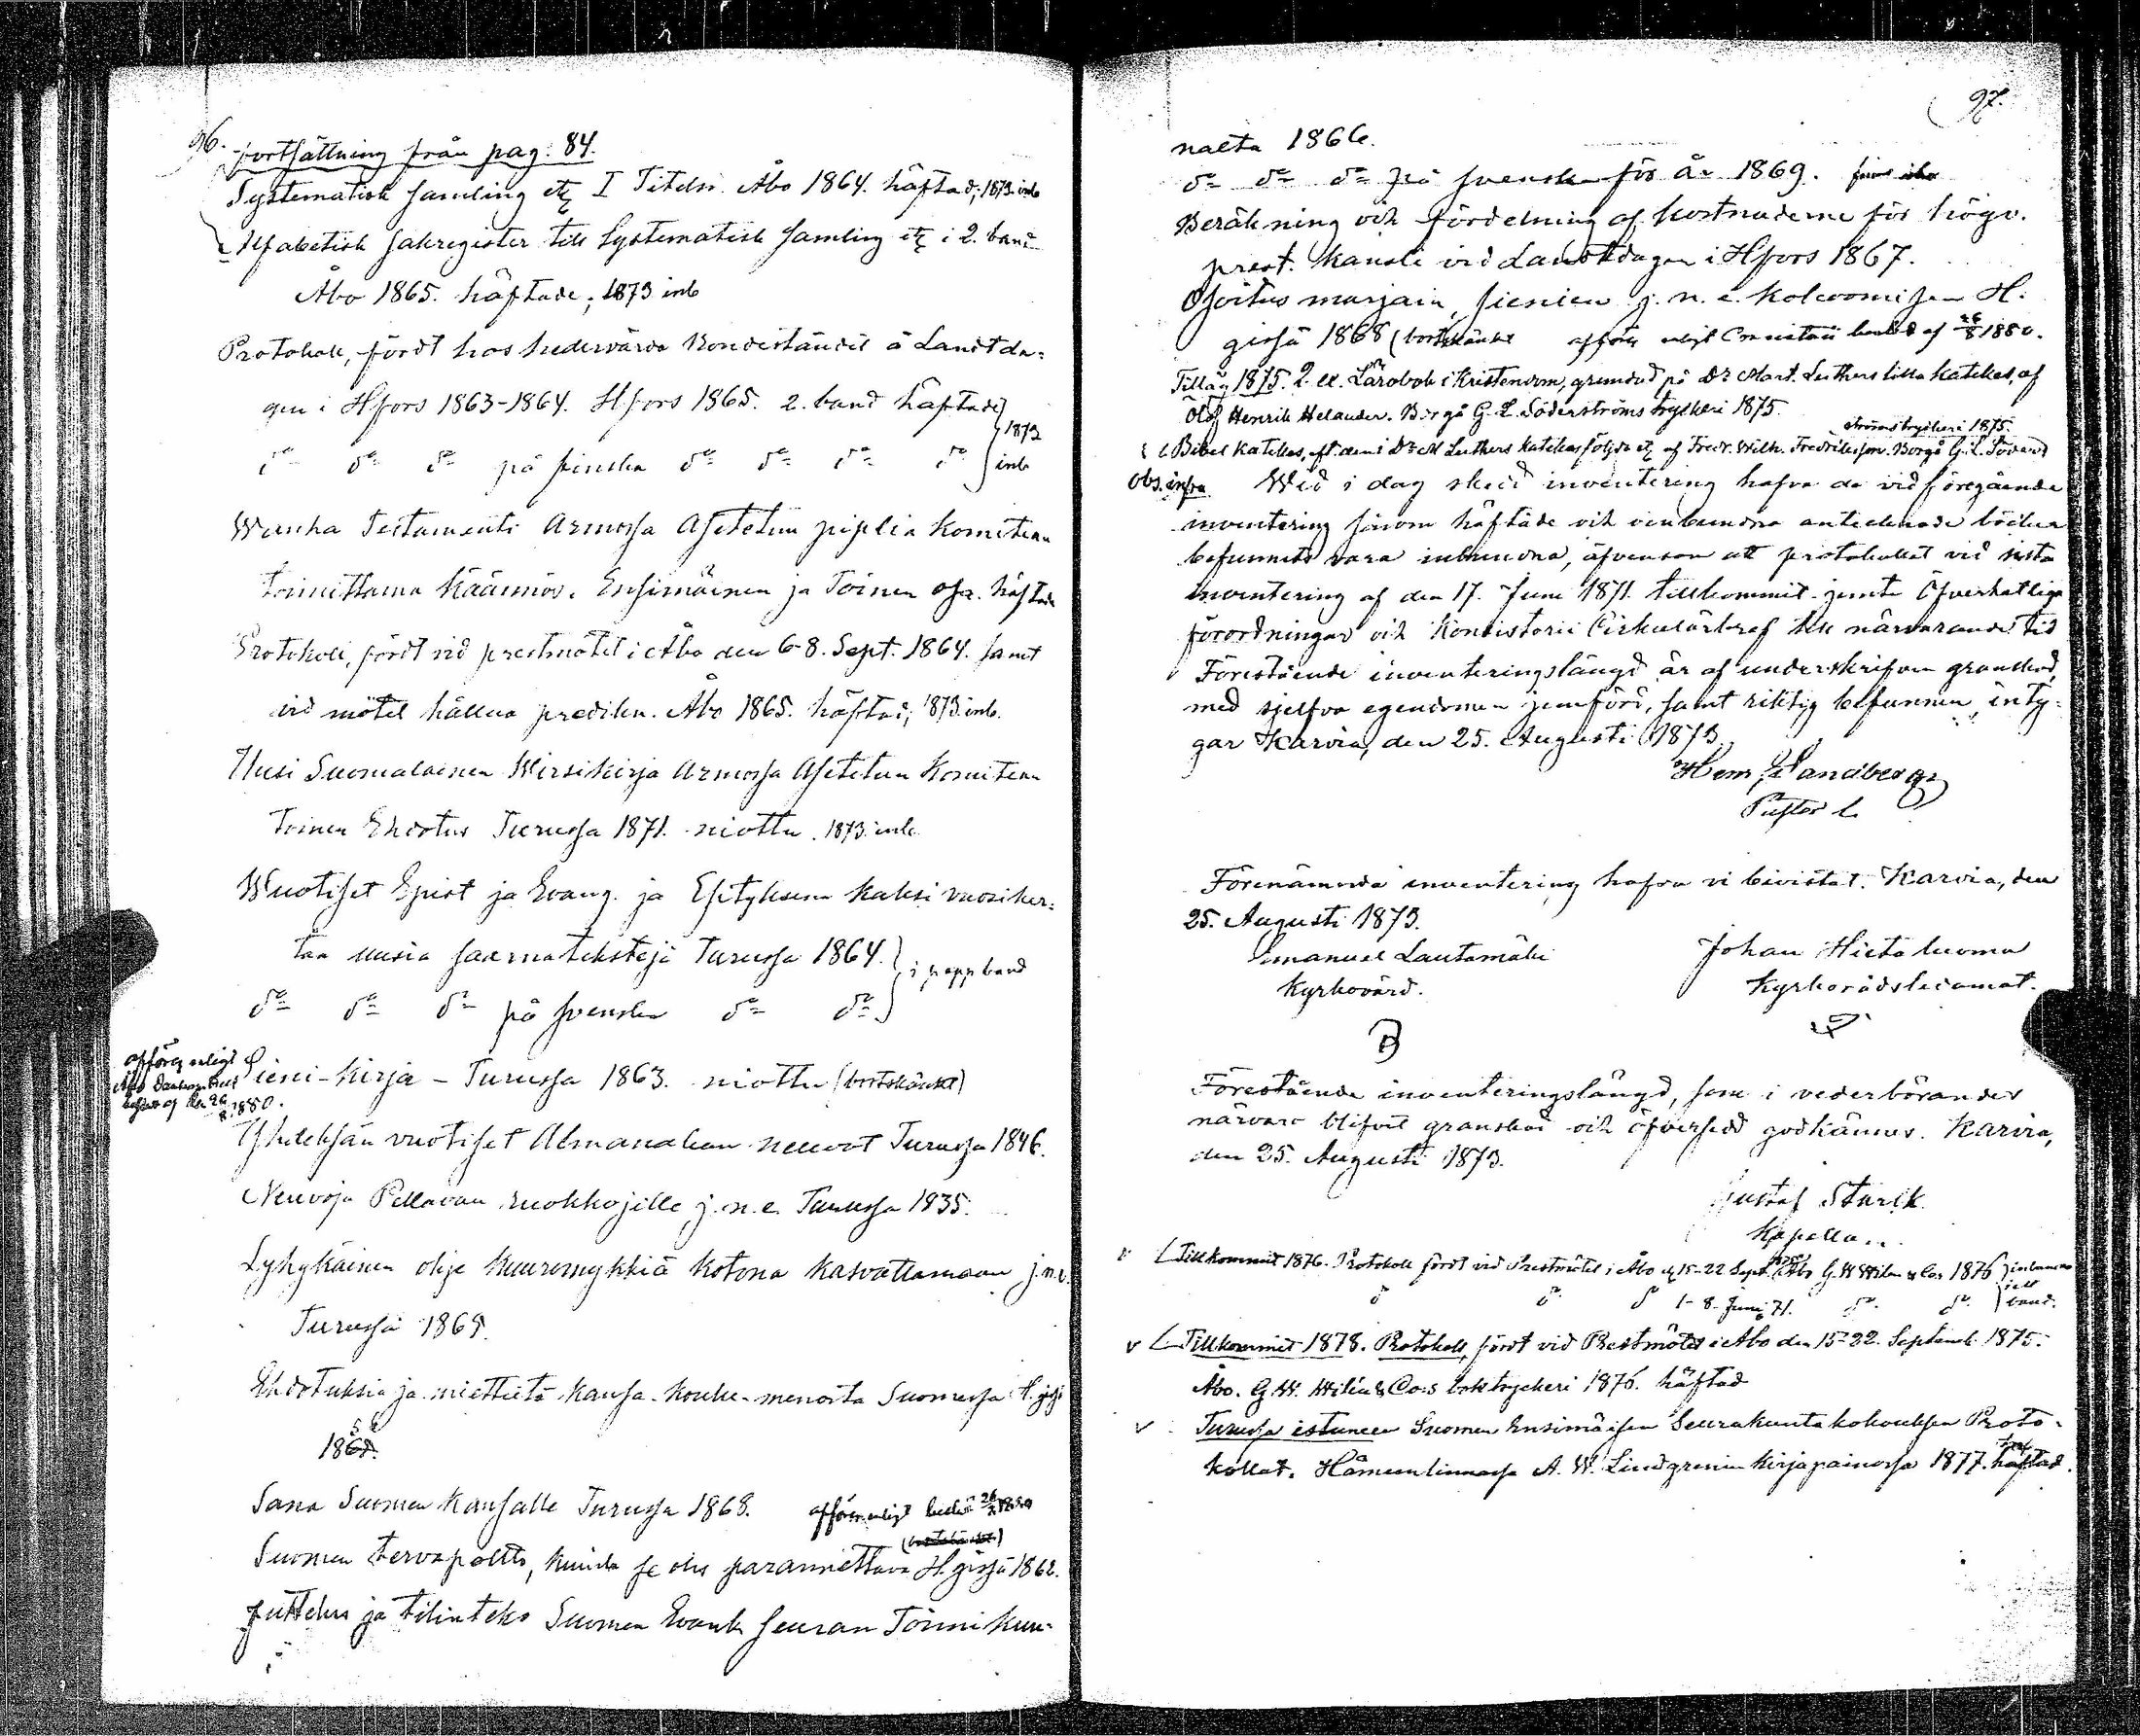 96.
fortsättning från pag. 84.
Systematisk samling etc I Titeln. Åbo 1864. häftad; 1873 inb
Alfabetisk sakregister till Systematisk samling etc i 2. band
Åbo 1865. häftade; 1873 inb
Protokoll, fördt hos hedervärda Bondeståndet å Landtda:
gen i Hfors 1863-1864. Hfors 1865. 2. band häftade
d:o d:o d:o på finska d:o d:o d:o d:o
1873
inb
Wanha Testamenti Armossa Asetetun piplia komitean
toimittama käännös. Ensimäinen ja Toinen osa. häftade
Protokoll, fördt vid prestmötet i Åbo den 6-8. Sept. 1864. samt
vid mötet hållna predikn. Åbo 1865. häftad; 1873 inb.
Uusi Suomalainen Wirsikirja Armossa Asetetun Komitean
Toinen Ehdotus Turussa 1871. niottu. 1873 inb.
Wuotiset Epist ja Evang. ja Esityksenä kaksi vuosiker:
taa uusia saarnatekstejä Turussa 1864.
d:o d:o d:o på svenska d:o d:o
i pappband
afföres enligt
beslut af den 26/8 1880.
Sieni-kirja - Turussa 1863. niottu (bortskänkt)
Yhdeksän vuotiset Almanakan neuvot Turussa 1846.
Neuvoja Pellavan ruokkojille j.n.e. Turussa 1835.
Lyhykäinen ohje kuuromykkiä kotona kasvattamaan j.n.e.
Turussa 1865.
Ehdotuksia ja mietteitä kansa-koulu-menoista Suomessa H.gissä
1858.
Sana Suomen kansalle Turussa 1868. afföres enligt beslut 26/8 1880
(bortskänkt)
Suomen tervapoltto, kuinka se olis parannettava H.gissä 1862.
Juttelus ja tilinteko Suomen Evank seuran Toimikun-
97.
nalta 1866.
d:o d:o d:o på svenska för år 1869.
Beräkning och fördelning af kostnaderne för högv.
prest. kansli vid Landtdagen i Hfors 1867.
Osoitus marjain, sienien j.n.e. kokoomisen H.
gissä 1868 (bortskänkt afföres enligt beslut af 26/8 1880.
Tilläg 1875. 2 ex. Lärobok i Kristendom, grundad på Dr Mart. Luthers lilla katekes, af
Olof Henrik Helander. Borgå G. L. Söderströms tryckeri 1875.
ströms tryckeri 1875.
Bibel Katekes, eft. den i Dr M Luthers katekes följda etc af Fredr. Wilh. Fredriksson. Borgå G. L. Söder
Obs. infra Wid i dag skedd inventering hafva de vid föregående
inventering såsom häftade och oinbundna antecknade böcker
befunnits vara inbundna, äfvensom att protokollet vid sista
inventering af den 17. Juni 1871 tillkommit jemte Öfverhetliga
förordningar och Konsistorii Cirkulärbref till närvarande tid
Förestående inventeringslängd är af underskrifven granskad,
med sjelfva egendomen jemförd, samt riktig befunnen, inty-
gar Karvia, den 25. Augusti 1873
Herm. Sandberg
Pastor l.
Förenämnda inventering hafva vi bevistat. Karvia, den
25. Augusti 1873.
Emanuel Lautamäki
Kyrkovärd.
Johan Hietaluoma
Kyrkorådsledamot.
Förestående inventeringslängd, som i vederbörandes
närvaro blifvit granskad och öfversedd godkännes. Karvia,
den 25. Augusti 1873.
Gustaf Starck
Kapellan.
Tillkommit 1876. Protokoll fördt vid Prestmötet i Åbo d. 15-22 Sept. 1875. Åbo G. W Wilén & Co. 1876
d:o d:o d:o 1-8. Juni 71. d:o d:o
inbundna
i ett
band.
v Tillkommit 1878. Protokoll, fördt vid Prestmötet i Åbo den 15-22. Septemb. 1875.
Åbo. G. W. Wilén & Co:s boktryckeri 1876. häftad
v Turussa istuneen Suomen Ensimäisen Seurakuntakokouksen Proto-
kollat. Hämeenlinnassa A. W. Lindgrenin kirjapainossa 1877. häftad.